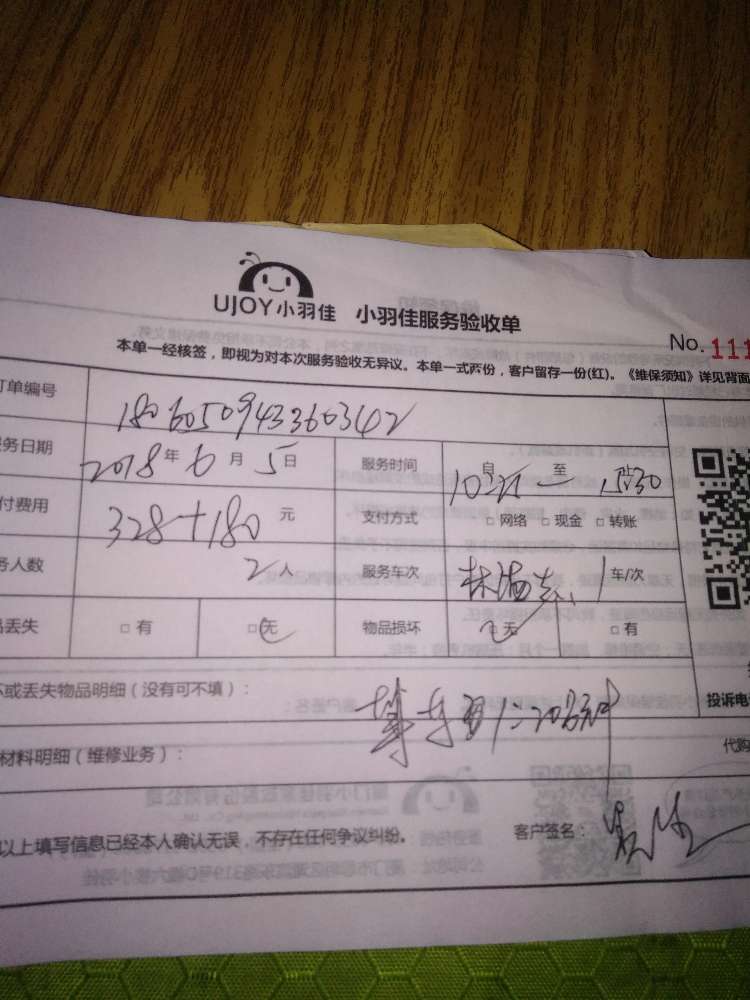 UJOY小羽佳 小羽佳服务验收单
No. 111
本单一经核签，即视为对本次服务验收无异议。本单一式两份，客户留存一份(红)。《维保须知》详见背面
订单编号 1806050943360342
务日期 2018年6月5日 服务时间 自 至
付费用 328+180元 支付方式 □网络 □现金 □转账
务人数 2人 服务车次 1车/次
品丢失 □有 □无 物品损坏 □无 □有
坏或丢失物品明细（没有可不填）：
投诉电
材料明细（维修业务）： 代购
以上填写信息已经本人确认无误，不存在任何争议纠纷。 客户签名：